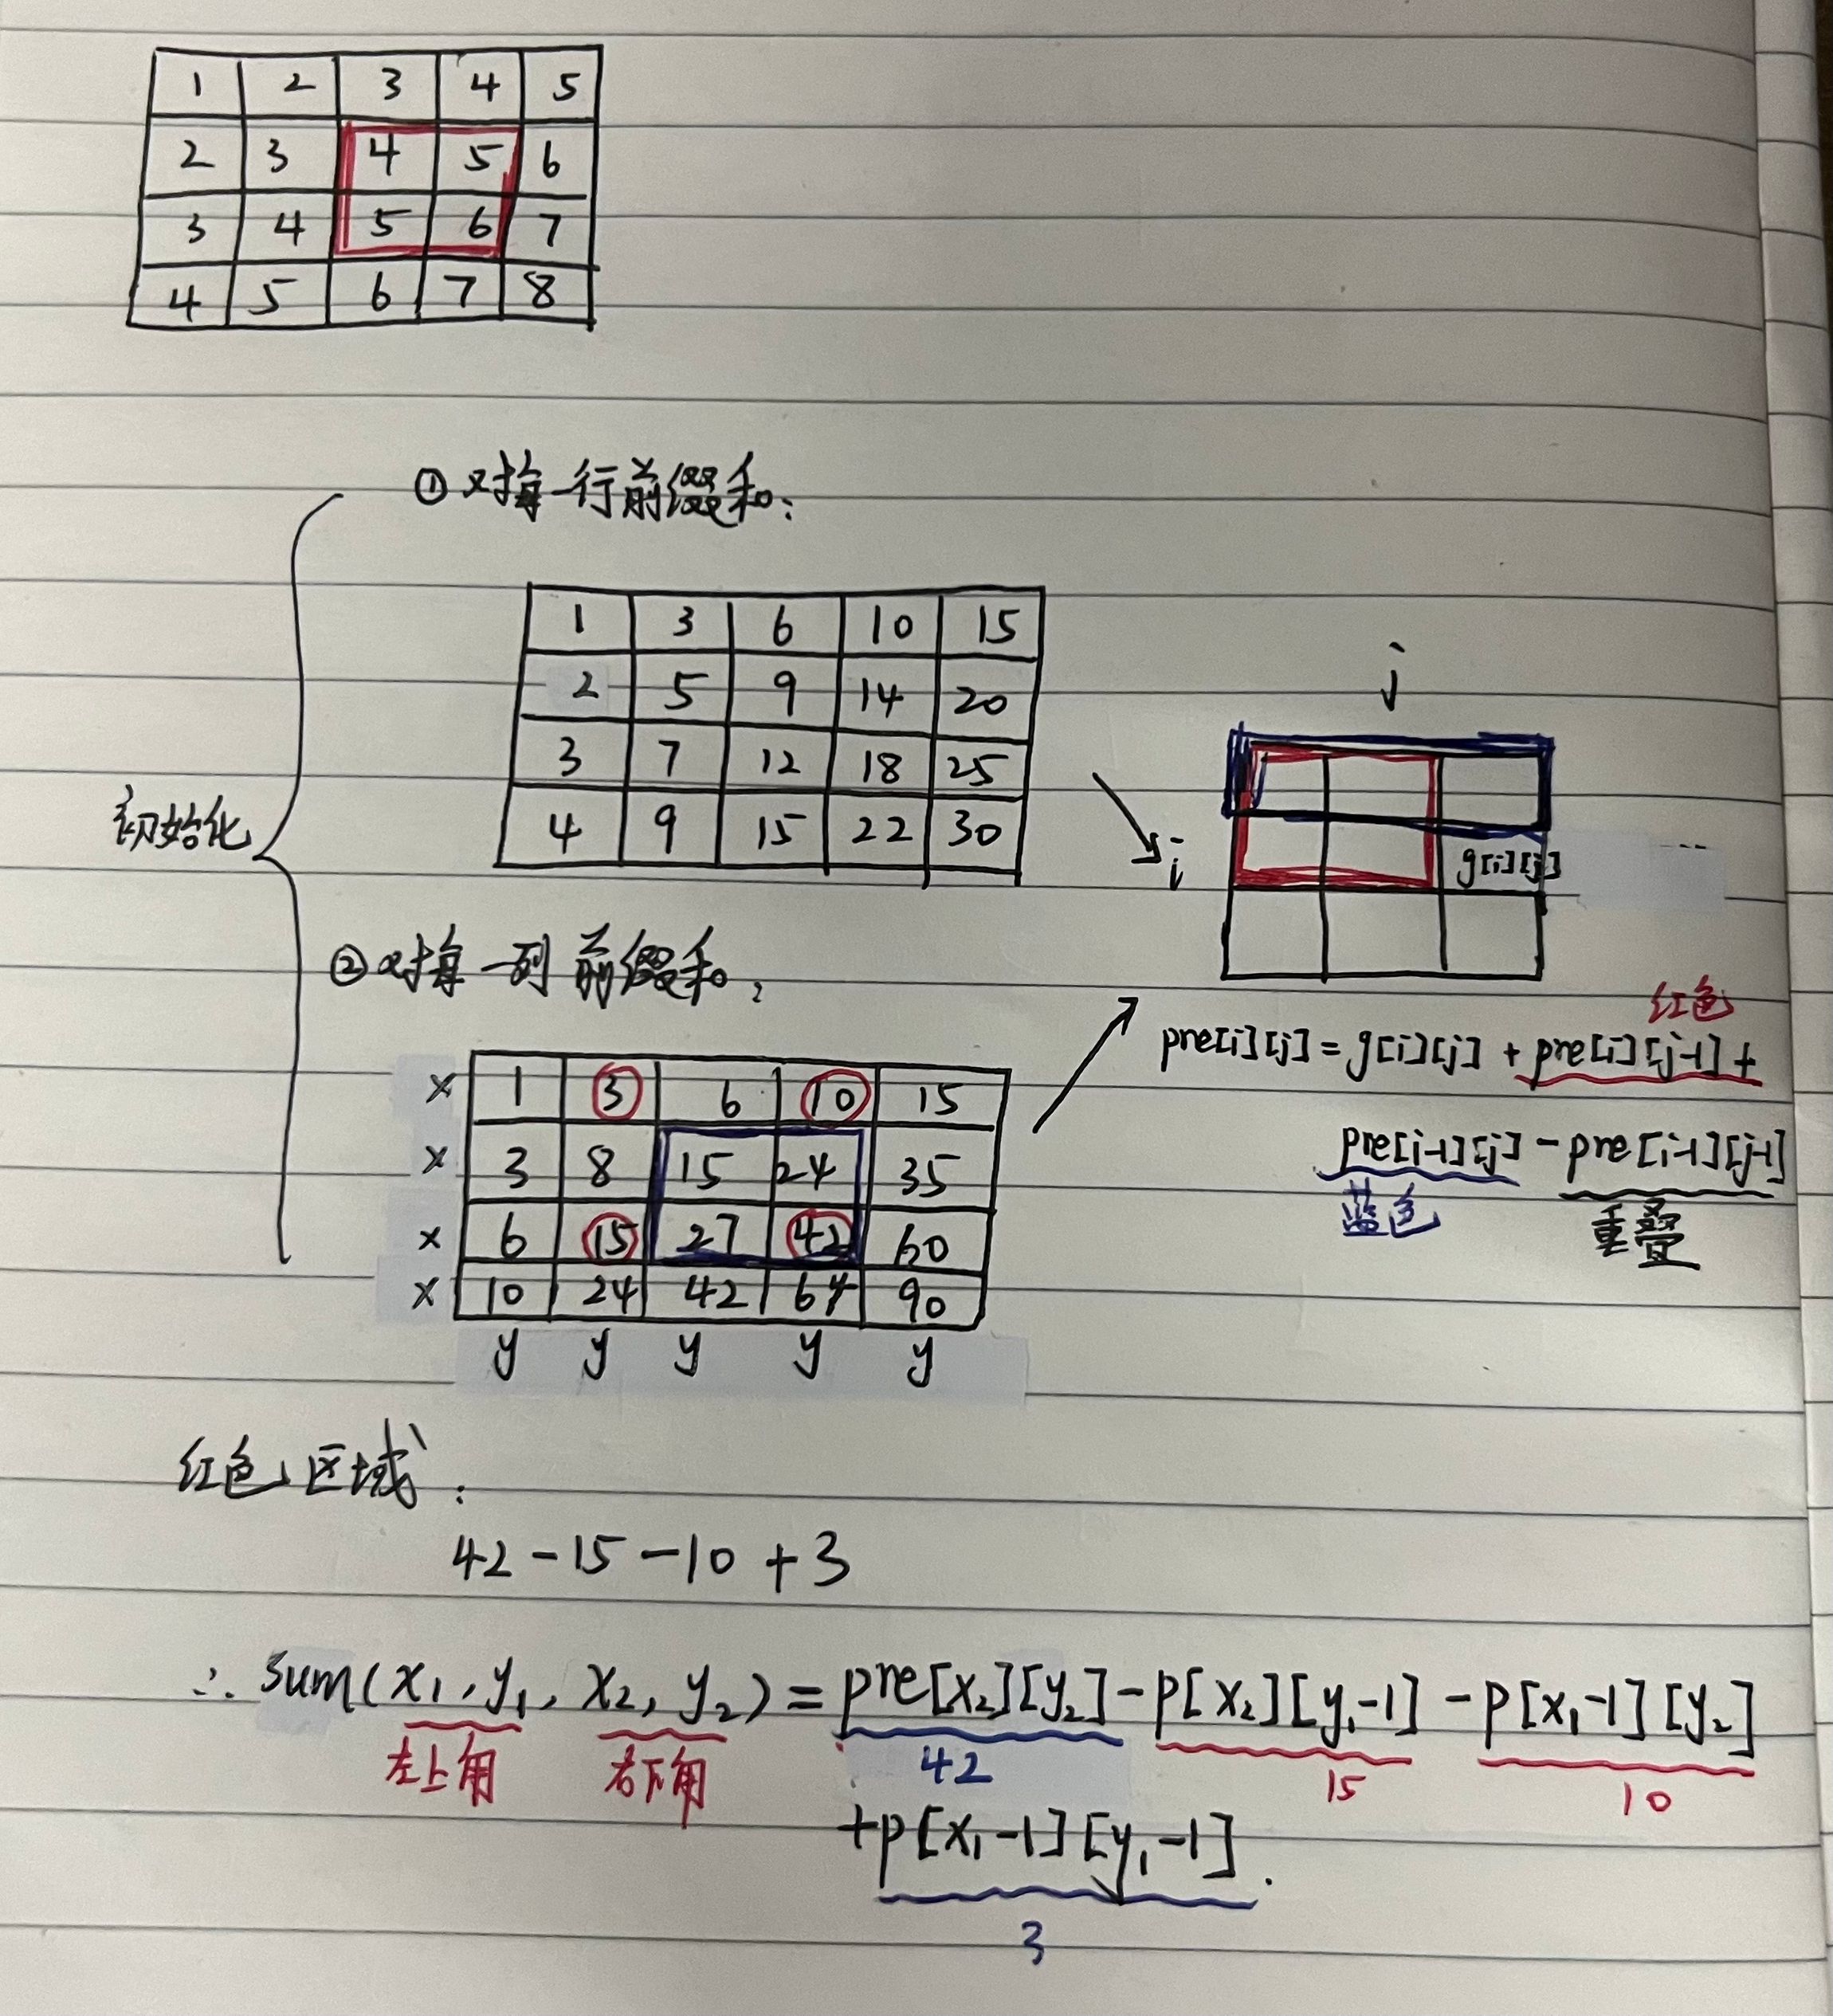 1 2 3 4 5
2 3 4 5 6
3 4 5 6 7
4 5 6 7 8
① 对每一行前缀和:
1 3 6 10 15
2 5 9 14 20
3 7 12 18 25
4 9 15 22 30
初始化
j
i
g[i][j]
② 对每一列前缀和:
x 1 3 6 10 15
x 3 8 15 24 35
x 6 15 27 42 60
x 10 24 42 64 90
y y y y y
红色
pre[i][j] = g[i][j] + pre[i][j-1] +
pre[i-1][j] - pre[i-1][j-1]
蓝色 重叠
红色区域:
42 - 15 - 10 + 3
∴ sum(x₁, y₁, x₂, y₂) = pre[x₂][y₂] - p[x₂][y₁-1] - p[x₁-1][y₂]
左上角 右下角 42 15 10
+ p[x₁-1][y₁-1].
3